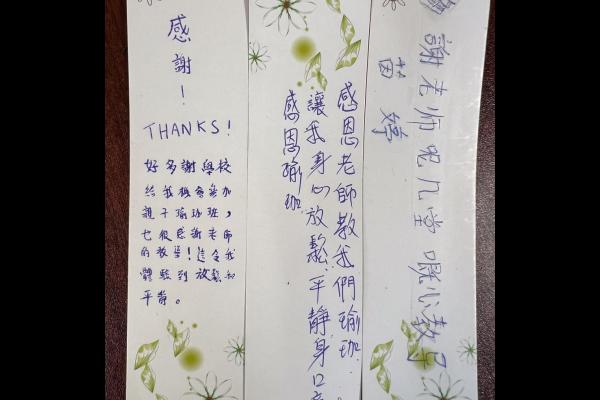 感謝！
THANKS!
好多謝學校
給我機會參加
親子瑜珈班，
也很感謝老師
的教導！這令我
體驗到放鬆和
平靜。
感恩老師教我們瑜珈.
讓我身心放鬆.平靜身口意
感恩瑜珈
謝老师呢几堂嘅心教导
茵婷